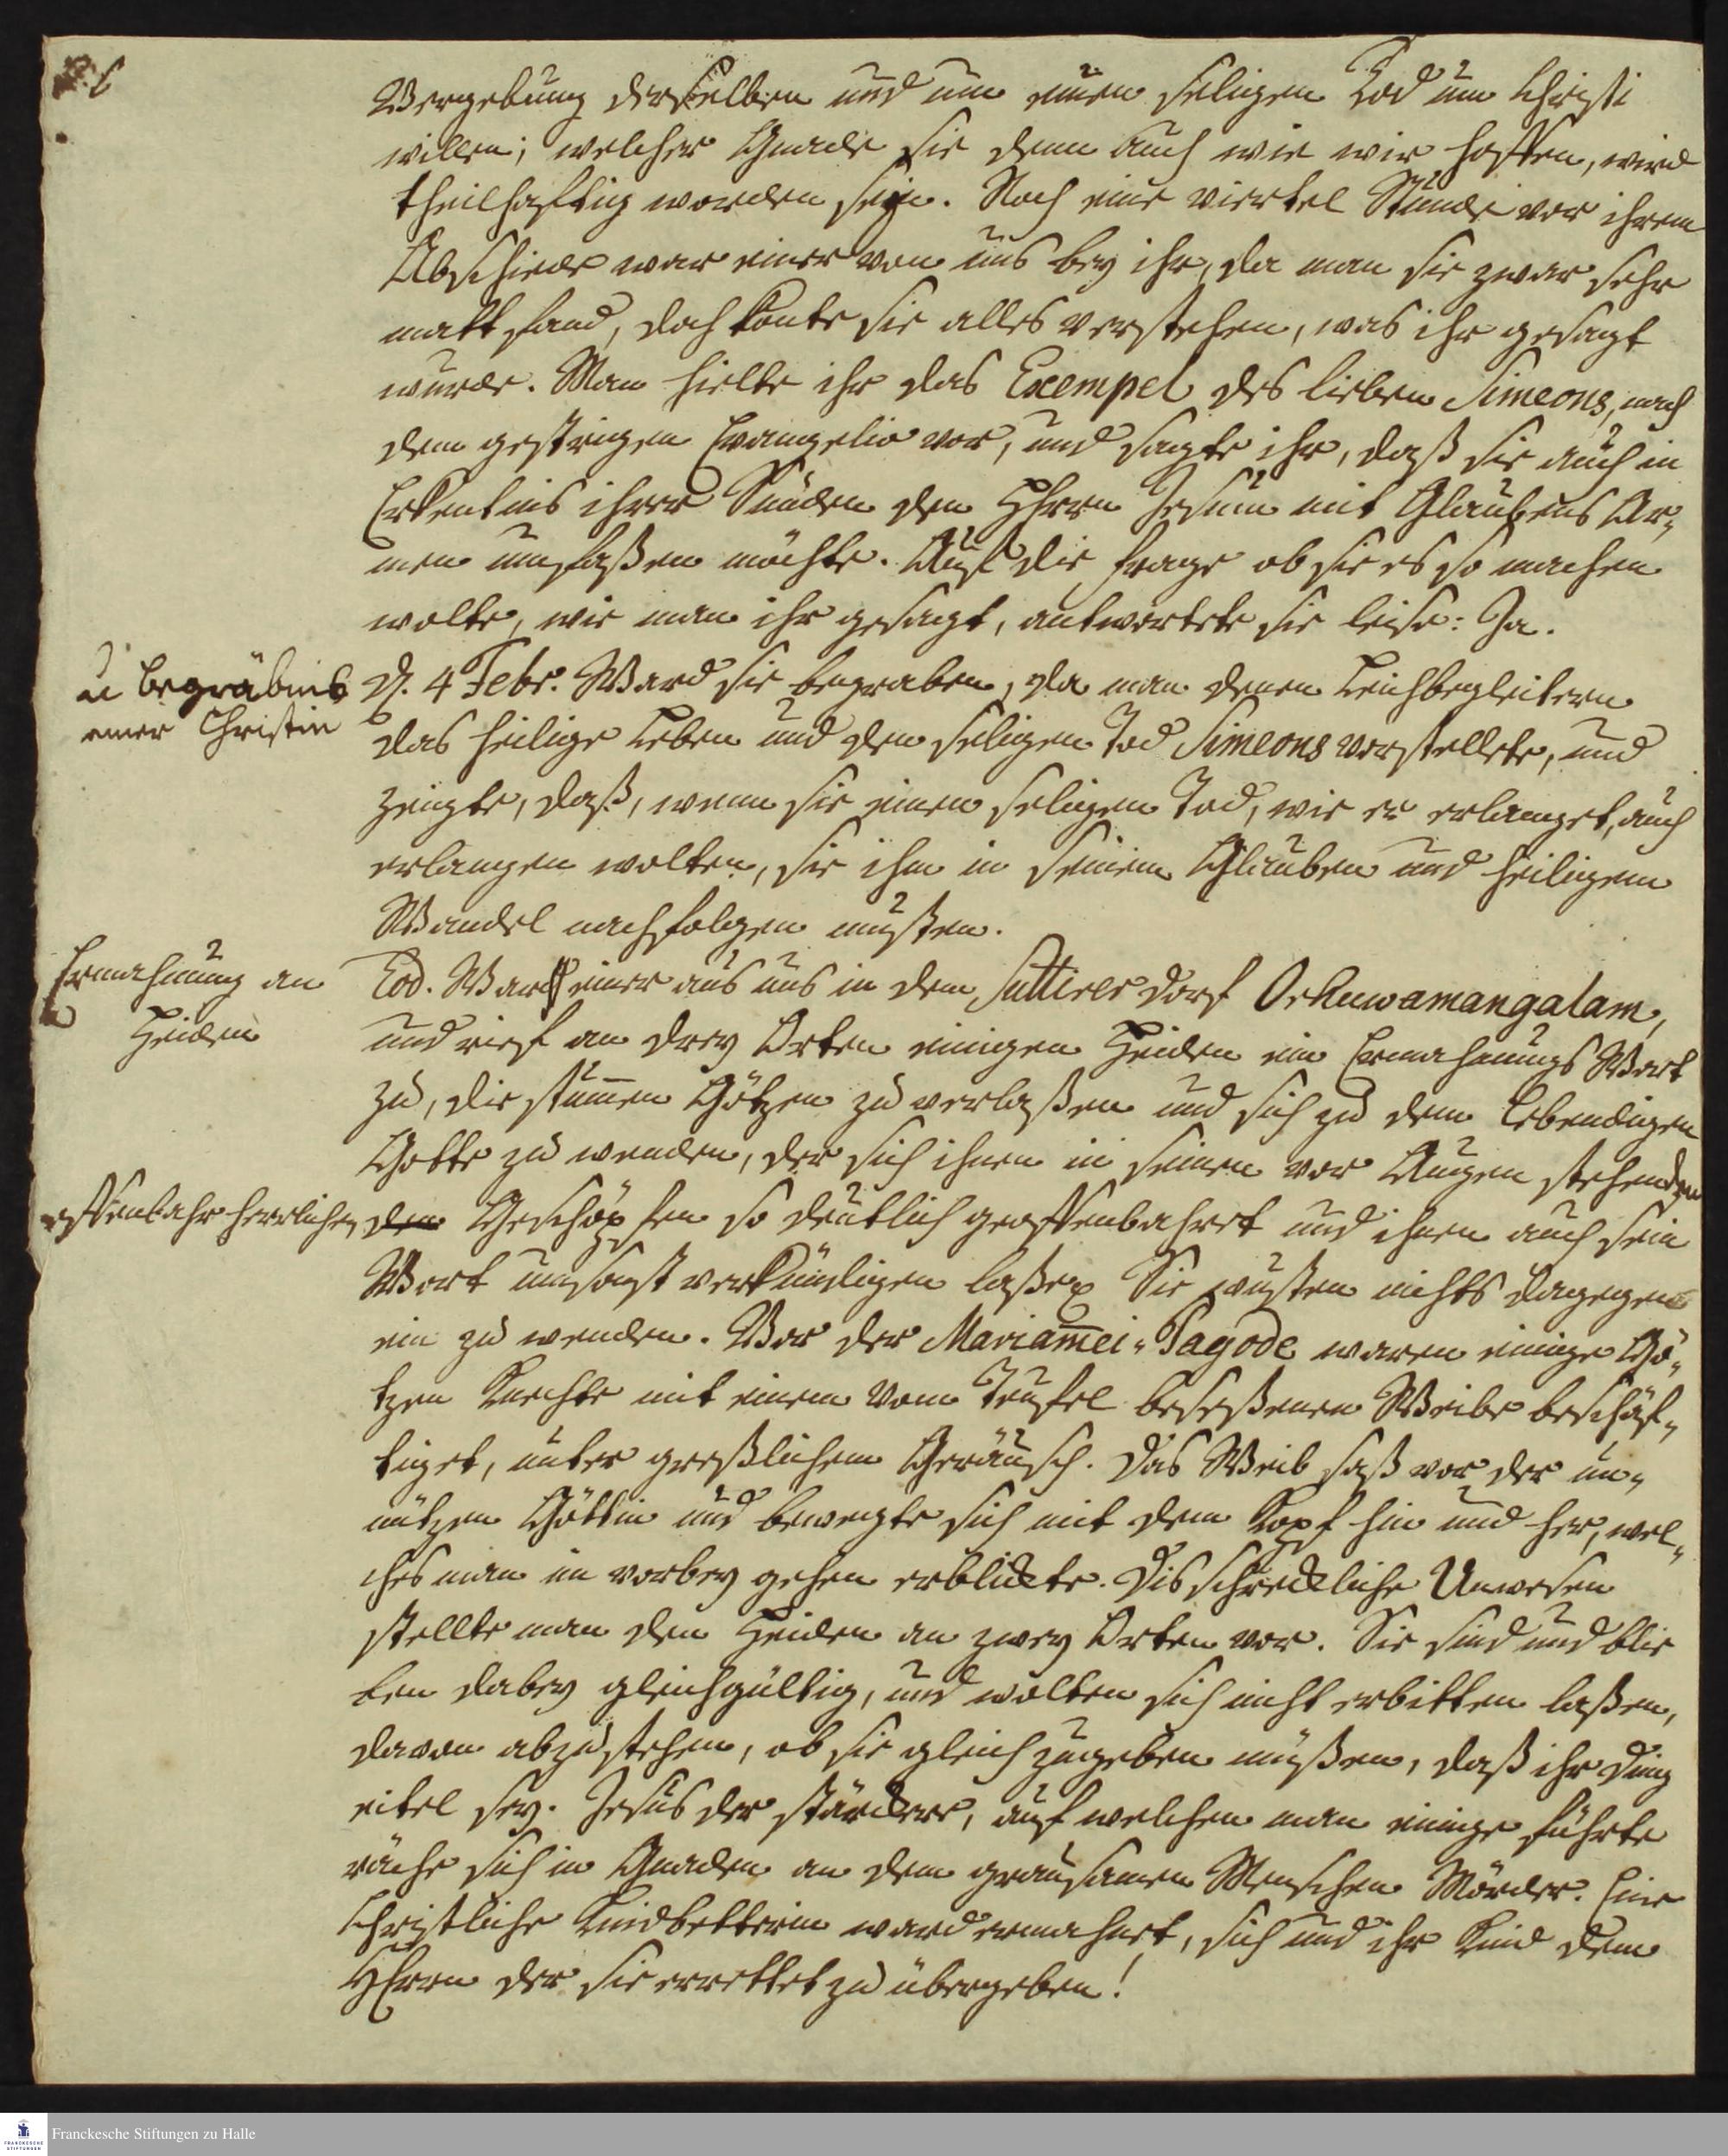 Vergebung derselben und um einen seligen Tod um Christi
willen; welcher Gnade sie denn auch wie wir hoffen, wird
theilhaftig worden seyn. Noch eine viertel Stunde vor ihrem
Abschiede war einer von uns bey ihr, da man sie zwar sehr
matt fand, doch konte sie alles verstehen, was ihr gesagt
wurde. Man hielte ihr das Exempel des lieben Simeons, nach
dem gestrigen Evangelio vor, und sagte ihr, daß sie auch in
Erkentnis ihrer Sünden den HErrn Jesum mit Glaubens Ar-
men umfaßen möchte. Auf die Frage ob sie es so machen
wolte, wie man ihr gesagt, antwortete sie leise: Ja.
u Begräbnis
einer Christin
D. 4 Febr. Ward sie begraben, da man denen Leichbegleitern
das heilige Leben und den seligen Tod Simeons vorstellete, und
zeigte, daß, wenn sie einen seligen Tod, wie er erlanget, auch
erlangen wolten, sie ihm in seinem Glauben und heiligem
Wandel nachfolgen müsten.
Ermahnung an
Heiden
Eod. War einer aus uns in dem Suttirer dorf Orkuwamangalam,
und rief an drey Orten einigen Heiden ein Ermahnungs Wort
zu, die stummen Götzen zu verlaßen und sich zu dem lebendigen
Gotte zu wenden, der sich ihnen in seinen vor Augen stehenden
offenbahr herrlichen
den Geschöpfen so deutlich geoffenbahret und ihnen auch sein
Wort umsonst verkündigen laßen. Sie wusten nichts dagegen
ein zu wenden. Vor der Mariam̅ei-Pagode waren einige Gö-
tzen Knechte mit einem vom Teufel beseßenen Weibe beschäf-
tiget, unter greßlichem Geräusch. Das Weib saß vor der un-
nützen Göttin und bewegte sich mit dem Kopf hin und her, wel-
ches man im vorbey gehen erblickte. Dis schreckliche Unwesen
stellte man den Heiden an zwey Orten vor. Sie sind und blie
ben dabey gleichgültig, und wolten sich nicht erbitten laßen,
davon abzustehen, ob sie gleich zugeben müßen, daß ihr Ding
eitel sey. Jesus der stärckere, auf welchen man einige führte
räche sich in Gnaden an dem grausamen Menschen Mörder. Eine
Christliche Kindbetterin ward ermahnet, sich und ihr Kind dem
HErrn der sie errettet zu übergeben!
Franckesche Stiftungen zu Halle
FRANCKESCHE
STIFTUNGEN